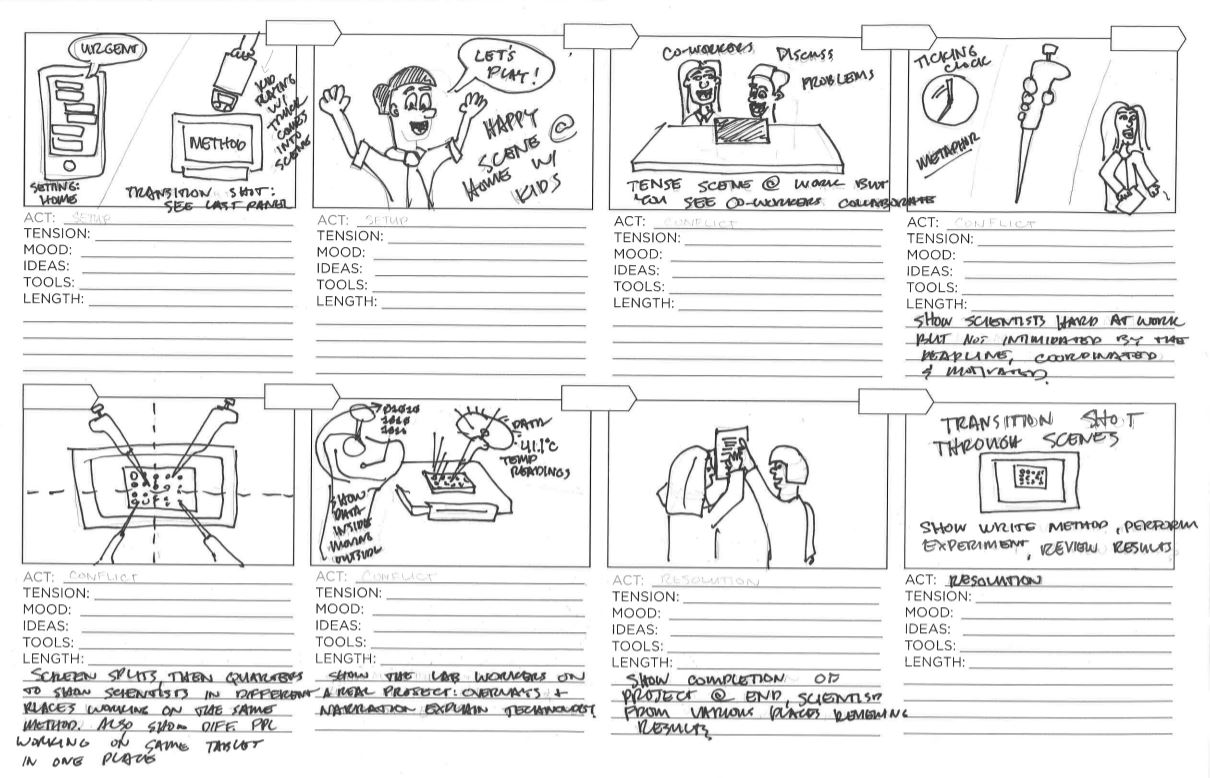 URGENT
METHOD
KID
PLAYING
W/
TRUCK
COMES
INTO
SCENE
SETTING:
HOME
TRANSITION SHOT:
SEE LAST PANEL
ACT: SETUP
TENSION:
MOOD:
IDEAS:
TOOLS:
LENGTH:
LET'S
PLAY!
HAPPY
SCENE @
HOME W/
KIDS
ACT: SETUP
TENSION:
MOOD:
IDEAS:
TOOLS:
LENGTH:
CO-WORKERS DISCUSS
PROBLEMS
TENSE SCENE @ WORK BUT
YOU SEE CO-WORKERS COLLABORATE
ACT: CONFLICT
TENSION:
MOOD:
IDEAS:
TOOLS:
LENGTH:
TICKING
CLOCK
METAPHOR
ACT: CONFLICT
TENSION:
MOOD:
IDEAS:
TOOLS:
LENGTH:
SHOW SCIENTISTS HARD AT WORK
BUT NOT INTIMIDATED BY THE
DEADLINE, COORDINATED
& MOTIVATED.
ACT: CONFLICT
TENSION:
MOOD:
IDEAS:
TOOLS:
LENGTH:
SCREEN SPLITS, THEN QUARTERS
TO SHOW SCIENTISTS IN DIFFERENT
PLACES WORKING ON THE SAME
METHOD. ALSO SHOW DIFF. PPL
WORKING ON SAME TABLET
IN ONE PLACE
01010
1010
DATA
41.1°C
TEMP
READINGS
SHOW
DATA
INSIDE
MOVING
OUTSIDE
ACT: CONFLICT
TENSION:
MOOD:
IDEAS:
TOOLS:
LENGTH:
SHOW THE LAB WORKERS ON
A REAL PROJECT: OVERLAYS +
NARRATION EXPLAIN TECHNOLOGY
ACT: RESOLUTION
TENSION:
MOOD:
IDEAS:
TOOLS:
LENGTH:
SHOW COMPLETION OF
PROJECT @ END, SCIENTISTS
FROM VARIOUS PLACES REVIEWING
RESULTS
TRANSITION SHOT
THROUGH SCENES
SHOW WRITE METHOD, PERFORM
EXPERIMENT, REVIEW RESULTS
ACT: RESOLUTION
TENSION:
MOOD:
IDEAS:
TOOLS:
LENGTH: